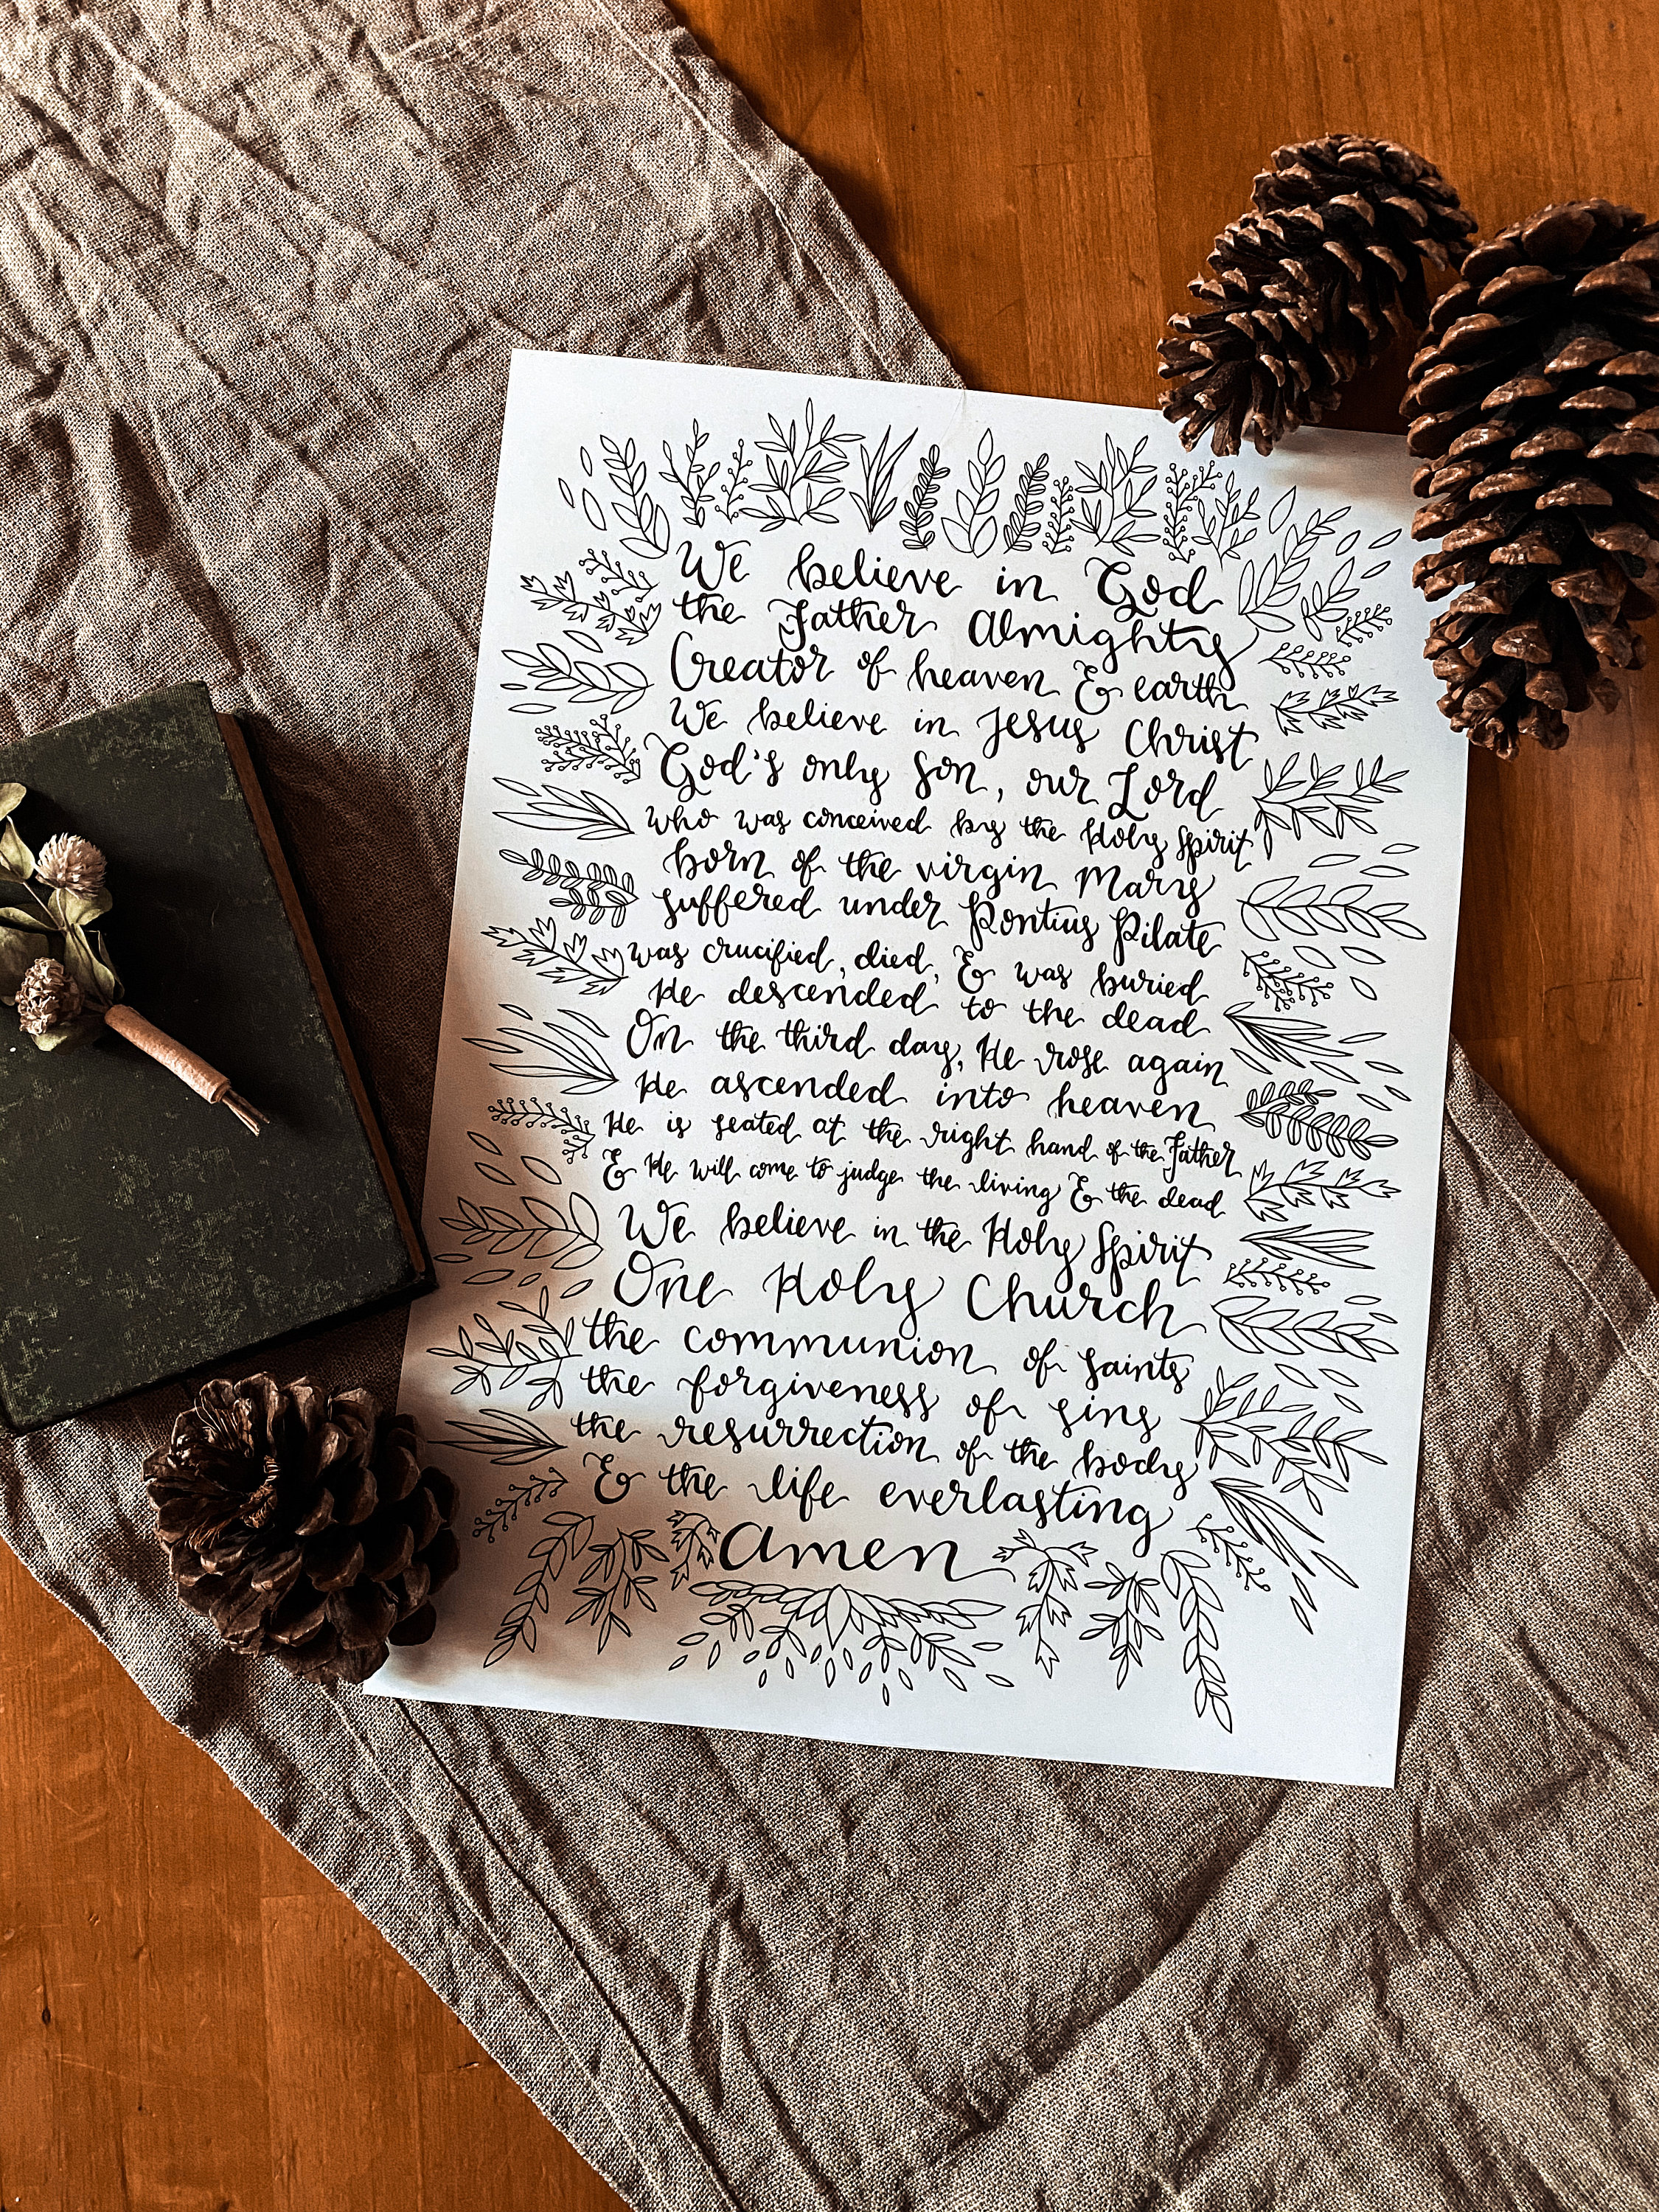 We believe in God
the Father Almighty
Creator of heaven & earth
We believe in Jesus Christ
God's only son, our Lord
who was conceived by the Holy Spirit
born of the virgin Mary
suffered under Pontius Pilate
was crucified, died, & was buried
He descended to the dead
On the third day, He rose again
He ascended into heaven
He is seated at the right hand of the Father
& He will come to judge the living & the dead
We believe in the Holy Spirit
One Holy Church
the communion of saints
the forgiveness of sins
the resurrection of the body
& the life everlasting
Amen